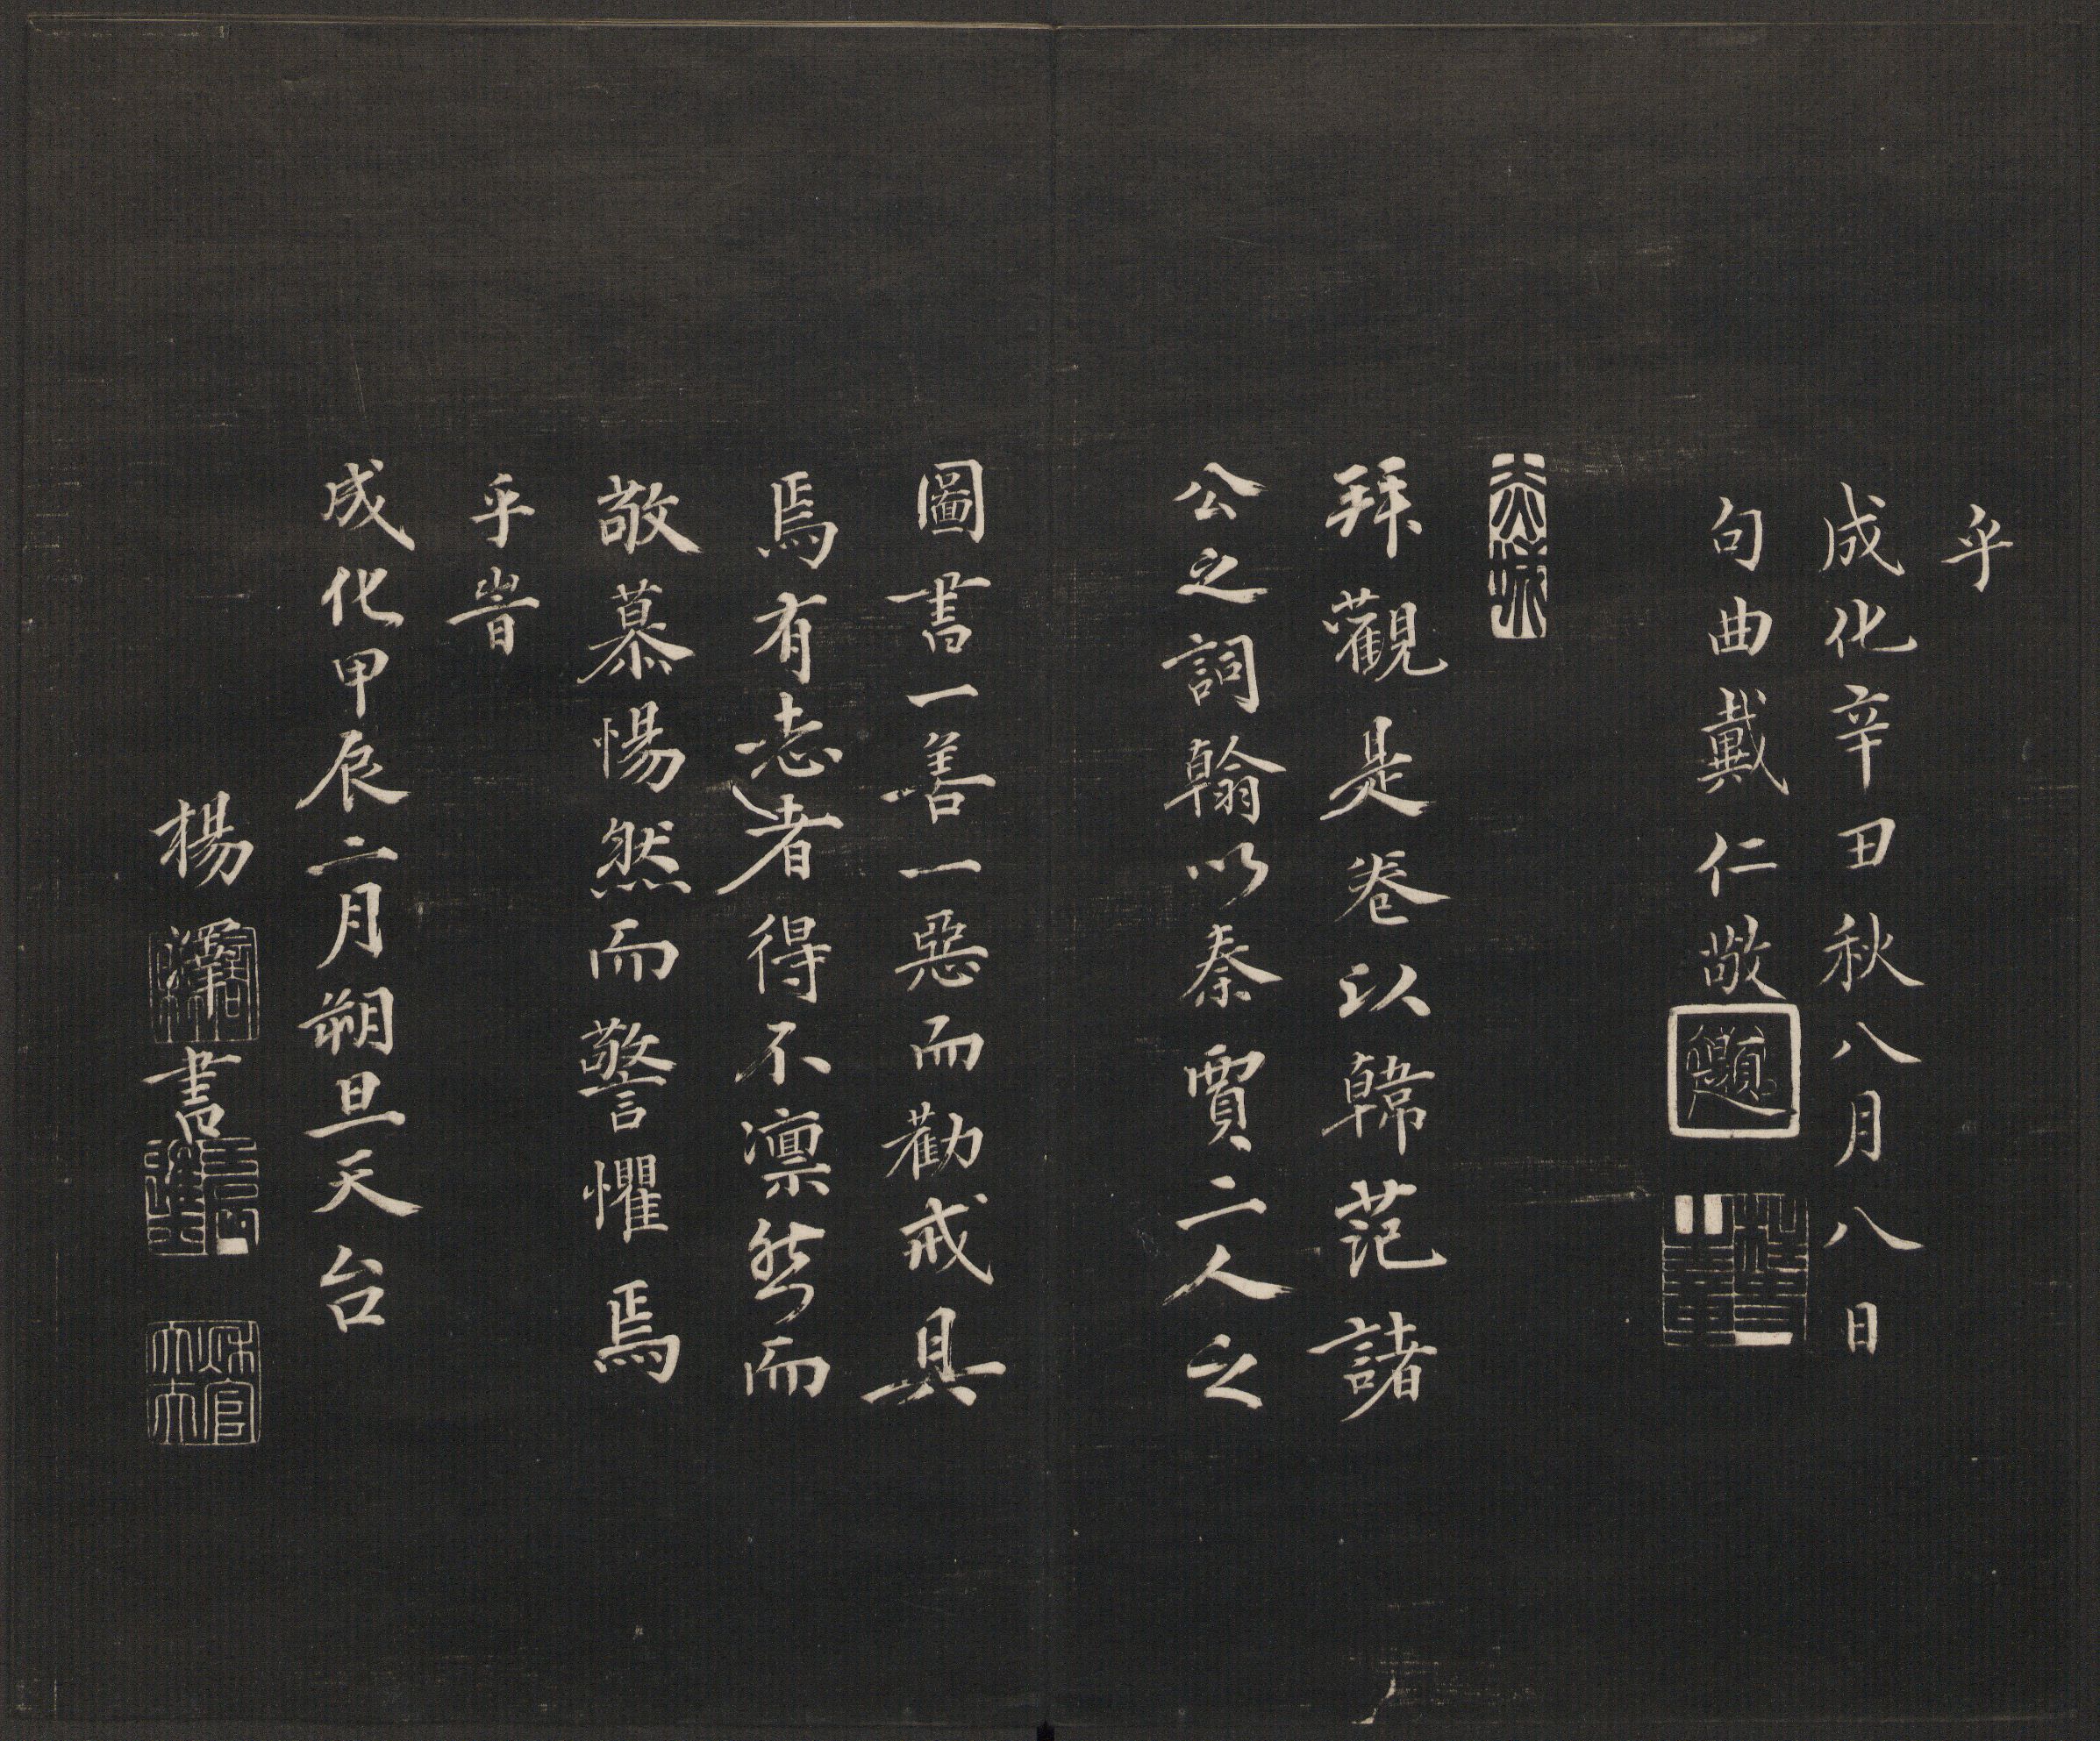 乎
成化辛丑秋八月八日
句曲戴仁敬題
拜觀是卷以韓范諸
公之詞翰以秦賈二人之
圖書一善一惡而勸戒具
焉有志者得不凛然而
敬慕惕然而警懼焉
乎旹
成化甲辰二月朔旦天台
楊澤書